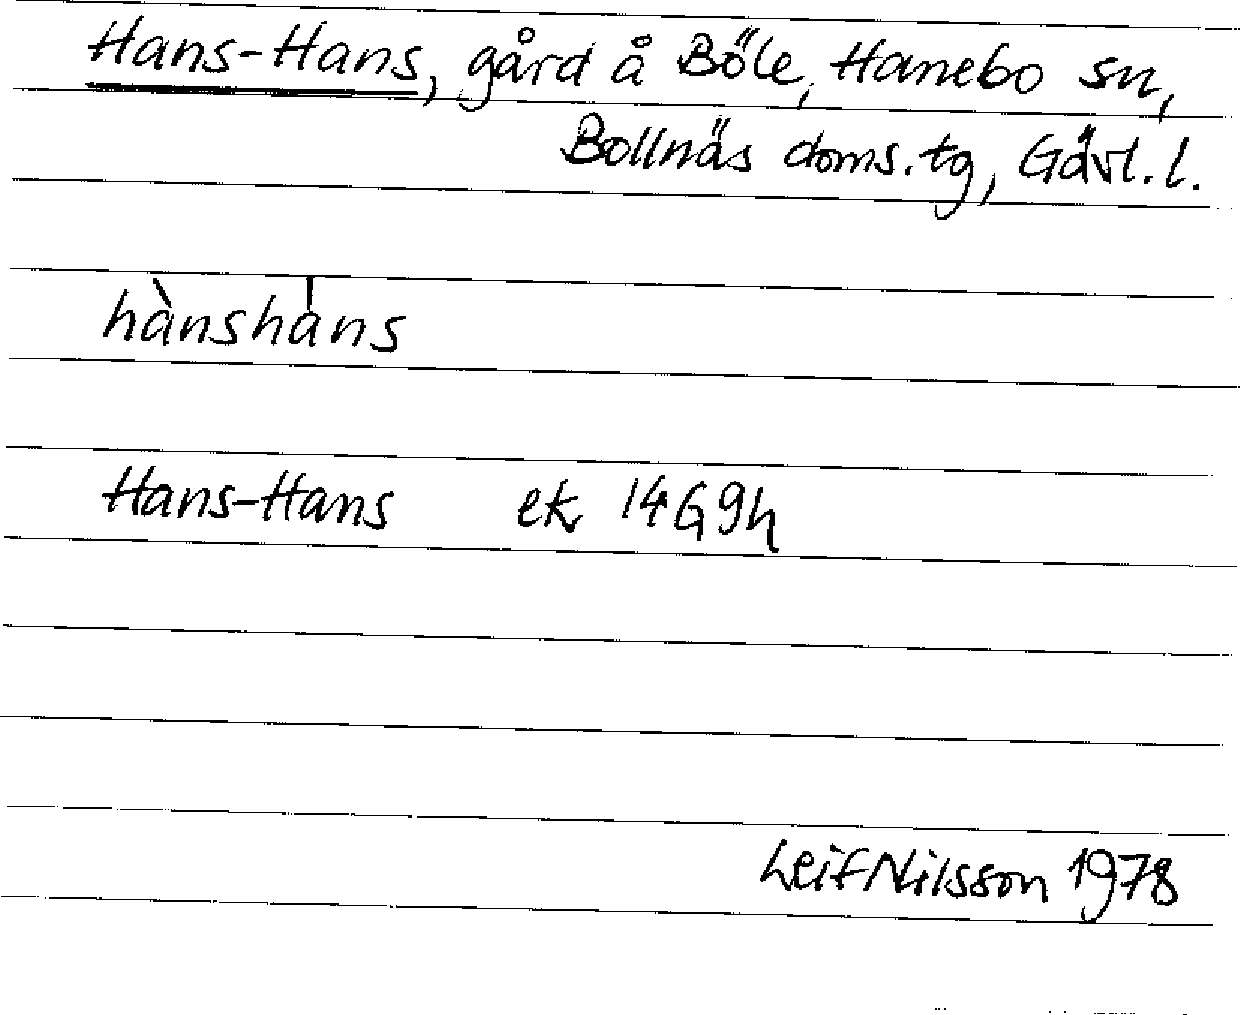 Hans-Hans, gård å Böle, Hanebo sn,
Bollnäs doms.tg, Gävl.l.
hànsha̍ns
Hans-Hans ek 14G9h
Leif Nilsson 1978